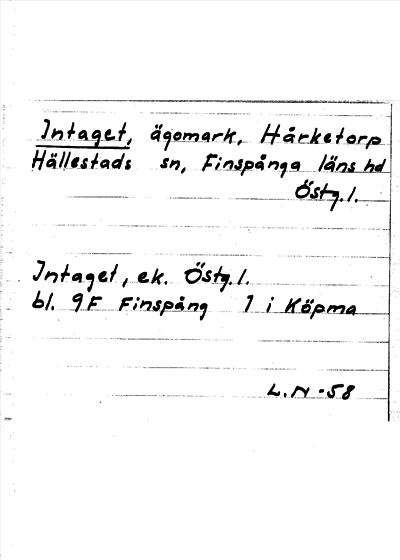 Intaget, ägomark, Hårketorp
Hällestads sn, Finspånga läns hd
Östg.l.
Intaget, ek. Östg.l.
bl. 9F Finspång 1 i Köpma
L.N -58